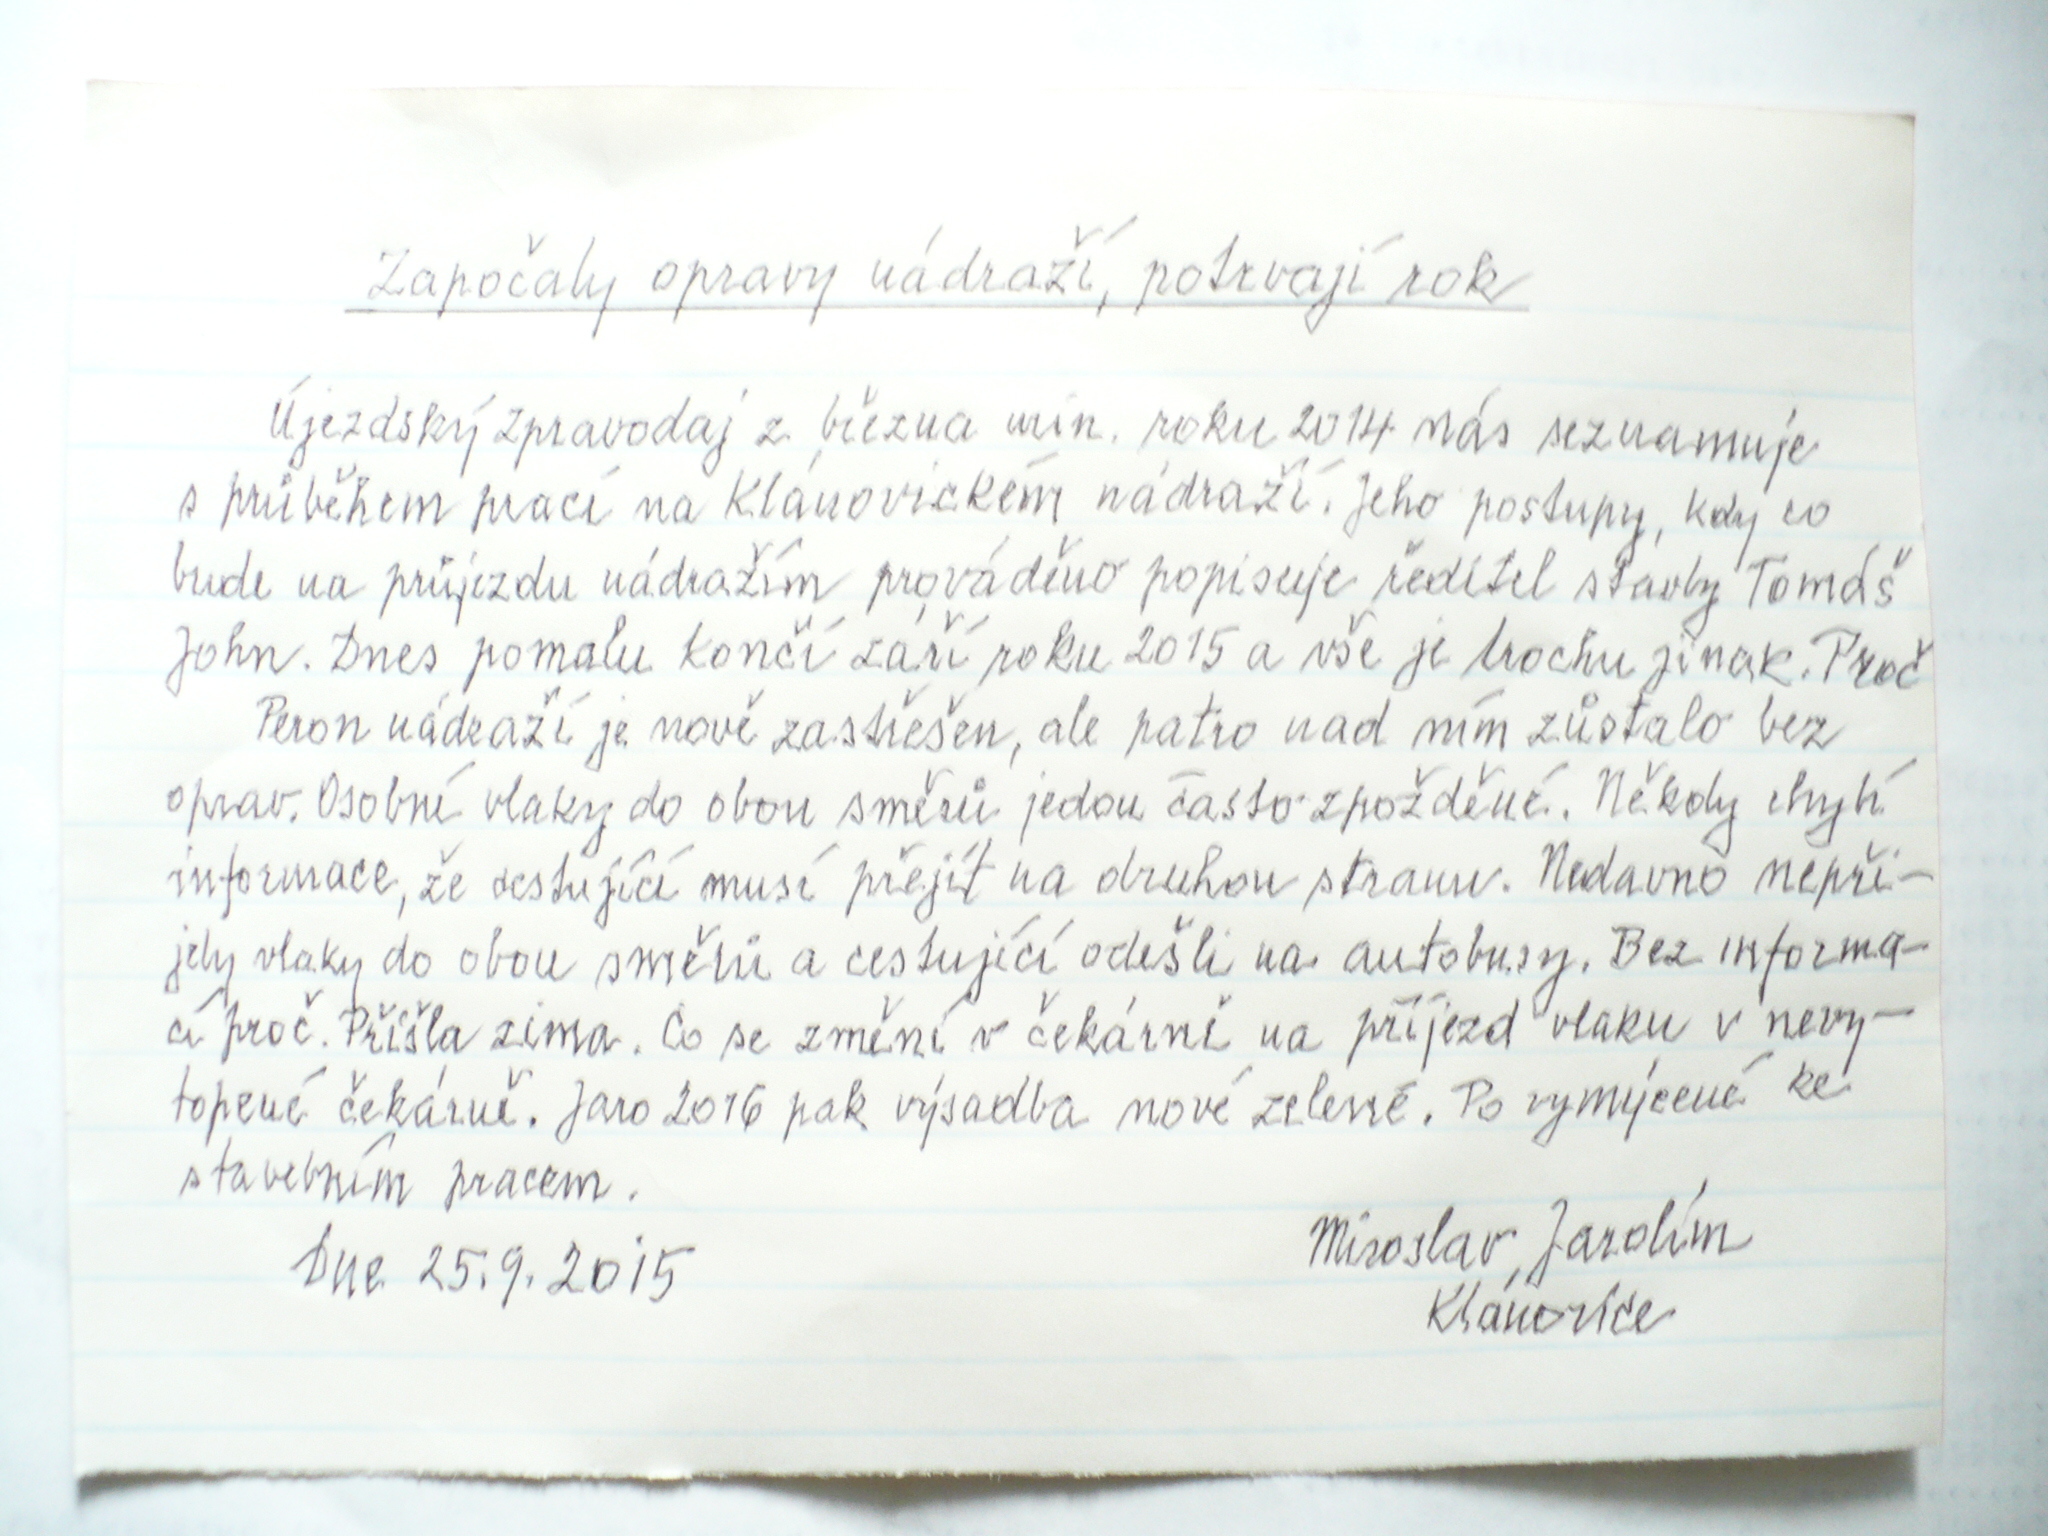 Započaly opravy nádraží, potrvají rok
Újezdský zpravodaj z března min. roku 2014 nás seznamuje
s průběhem prací na Klánovickém nádraží. Jeho postupy, kdy co
bude na průjezdu nádražím prováděno popisuje ředitel stavby Tomáš
John. Dnes pomalu končí září roku 2015 a vše je trochu jinak. Proč
Peron nádraží je nově zastřešen, ale patro nad ním zůstalo bez
oprav. Osobní vlaky do obou směrů jedou často zpožděné. Někdy chybí
informace, že cestující musí přejít na druhou stranu. Nedavno nepři-
jely vlaky do obou směrů a cestující odešli na autobusy. Bez informa-
cí proč. Přišla zima. Co se změní v čekárně na příjezd vlaku v nevy-
topené čekárně. Jaro 2016 pak výsadba nové zeleně. Po vymýcené ke
stavebním pracem.
Dne 25.9.2015
Miroslav Jarolím
Klánovice